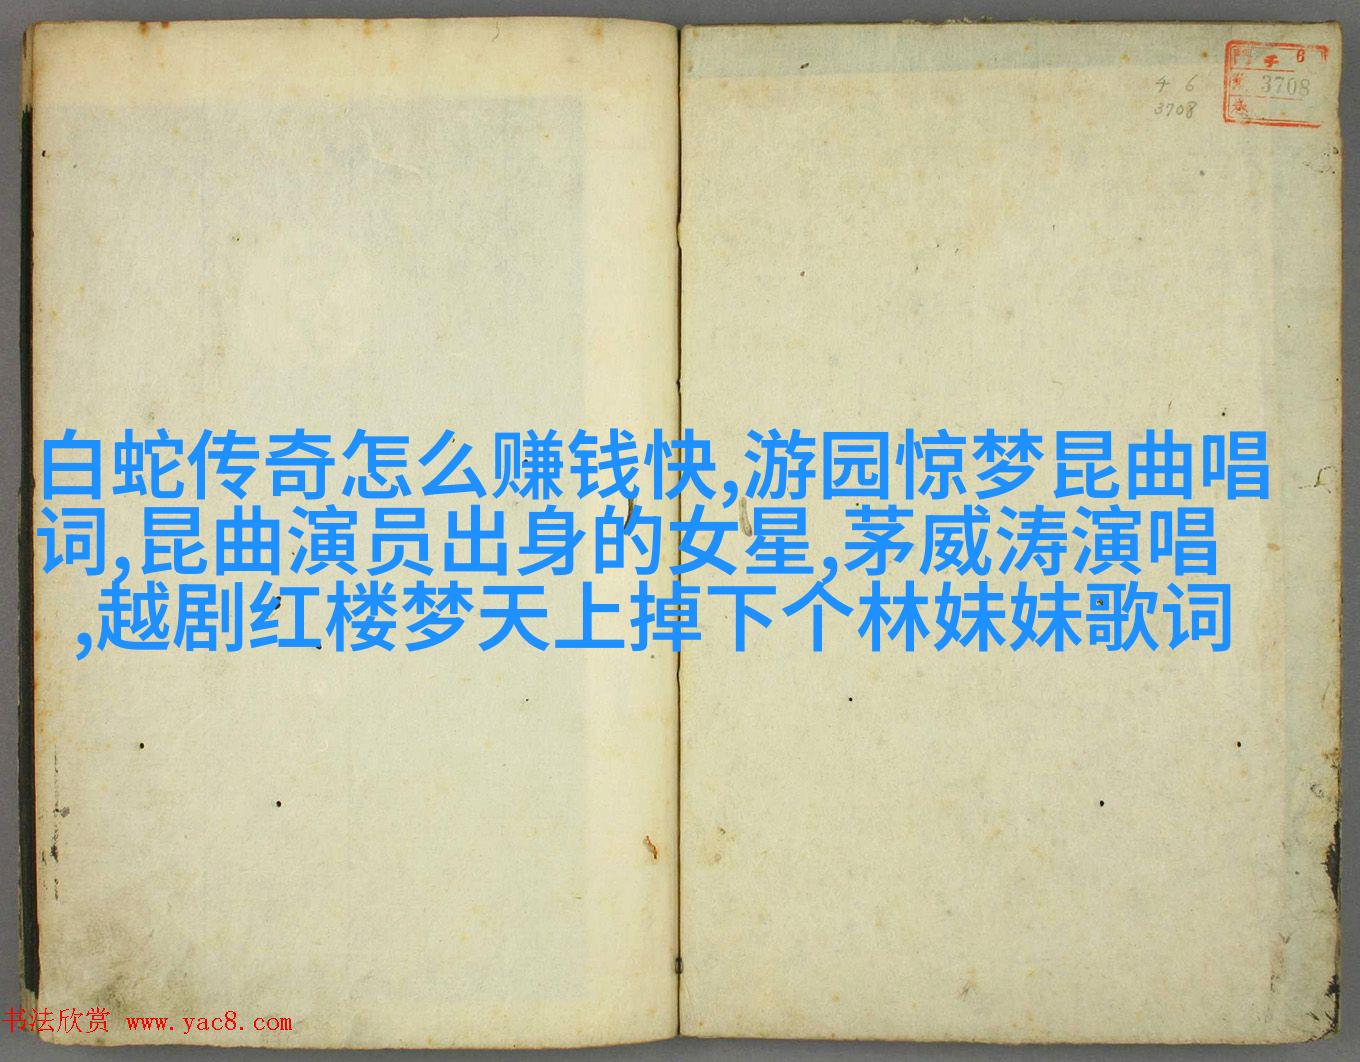 6
3708
4 6
3708
白蛇传奇怎么赚钱快,游园惊梦昆曲唱
词,昆曲演员出身的女星,茅威涛演唱
,越剧红楼梦天上掉下个林妹妹歌词
书法欣赏 www.yac8.com